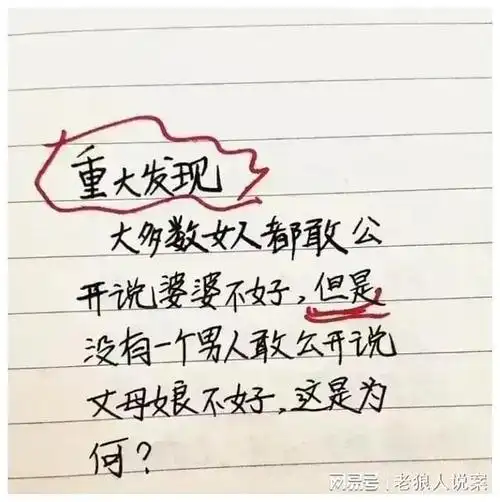 重大发现
大多数女人都敢公
开说婆婆不好,但是
没有一个男人敢公开说
丈母娘不好,这是为
何?
网易号 | 老狼人说案